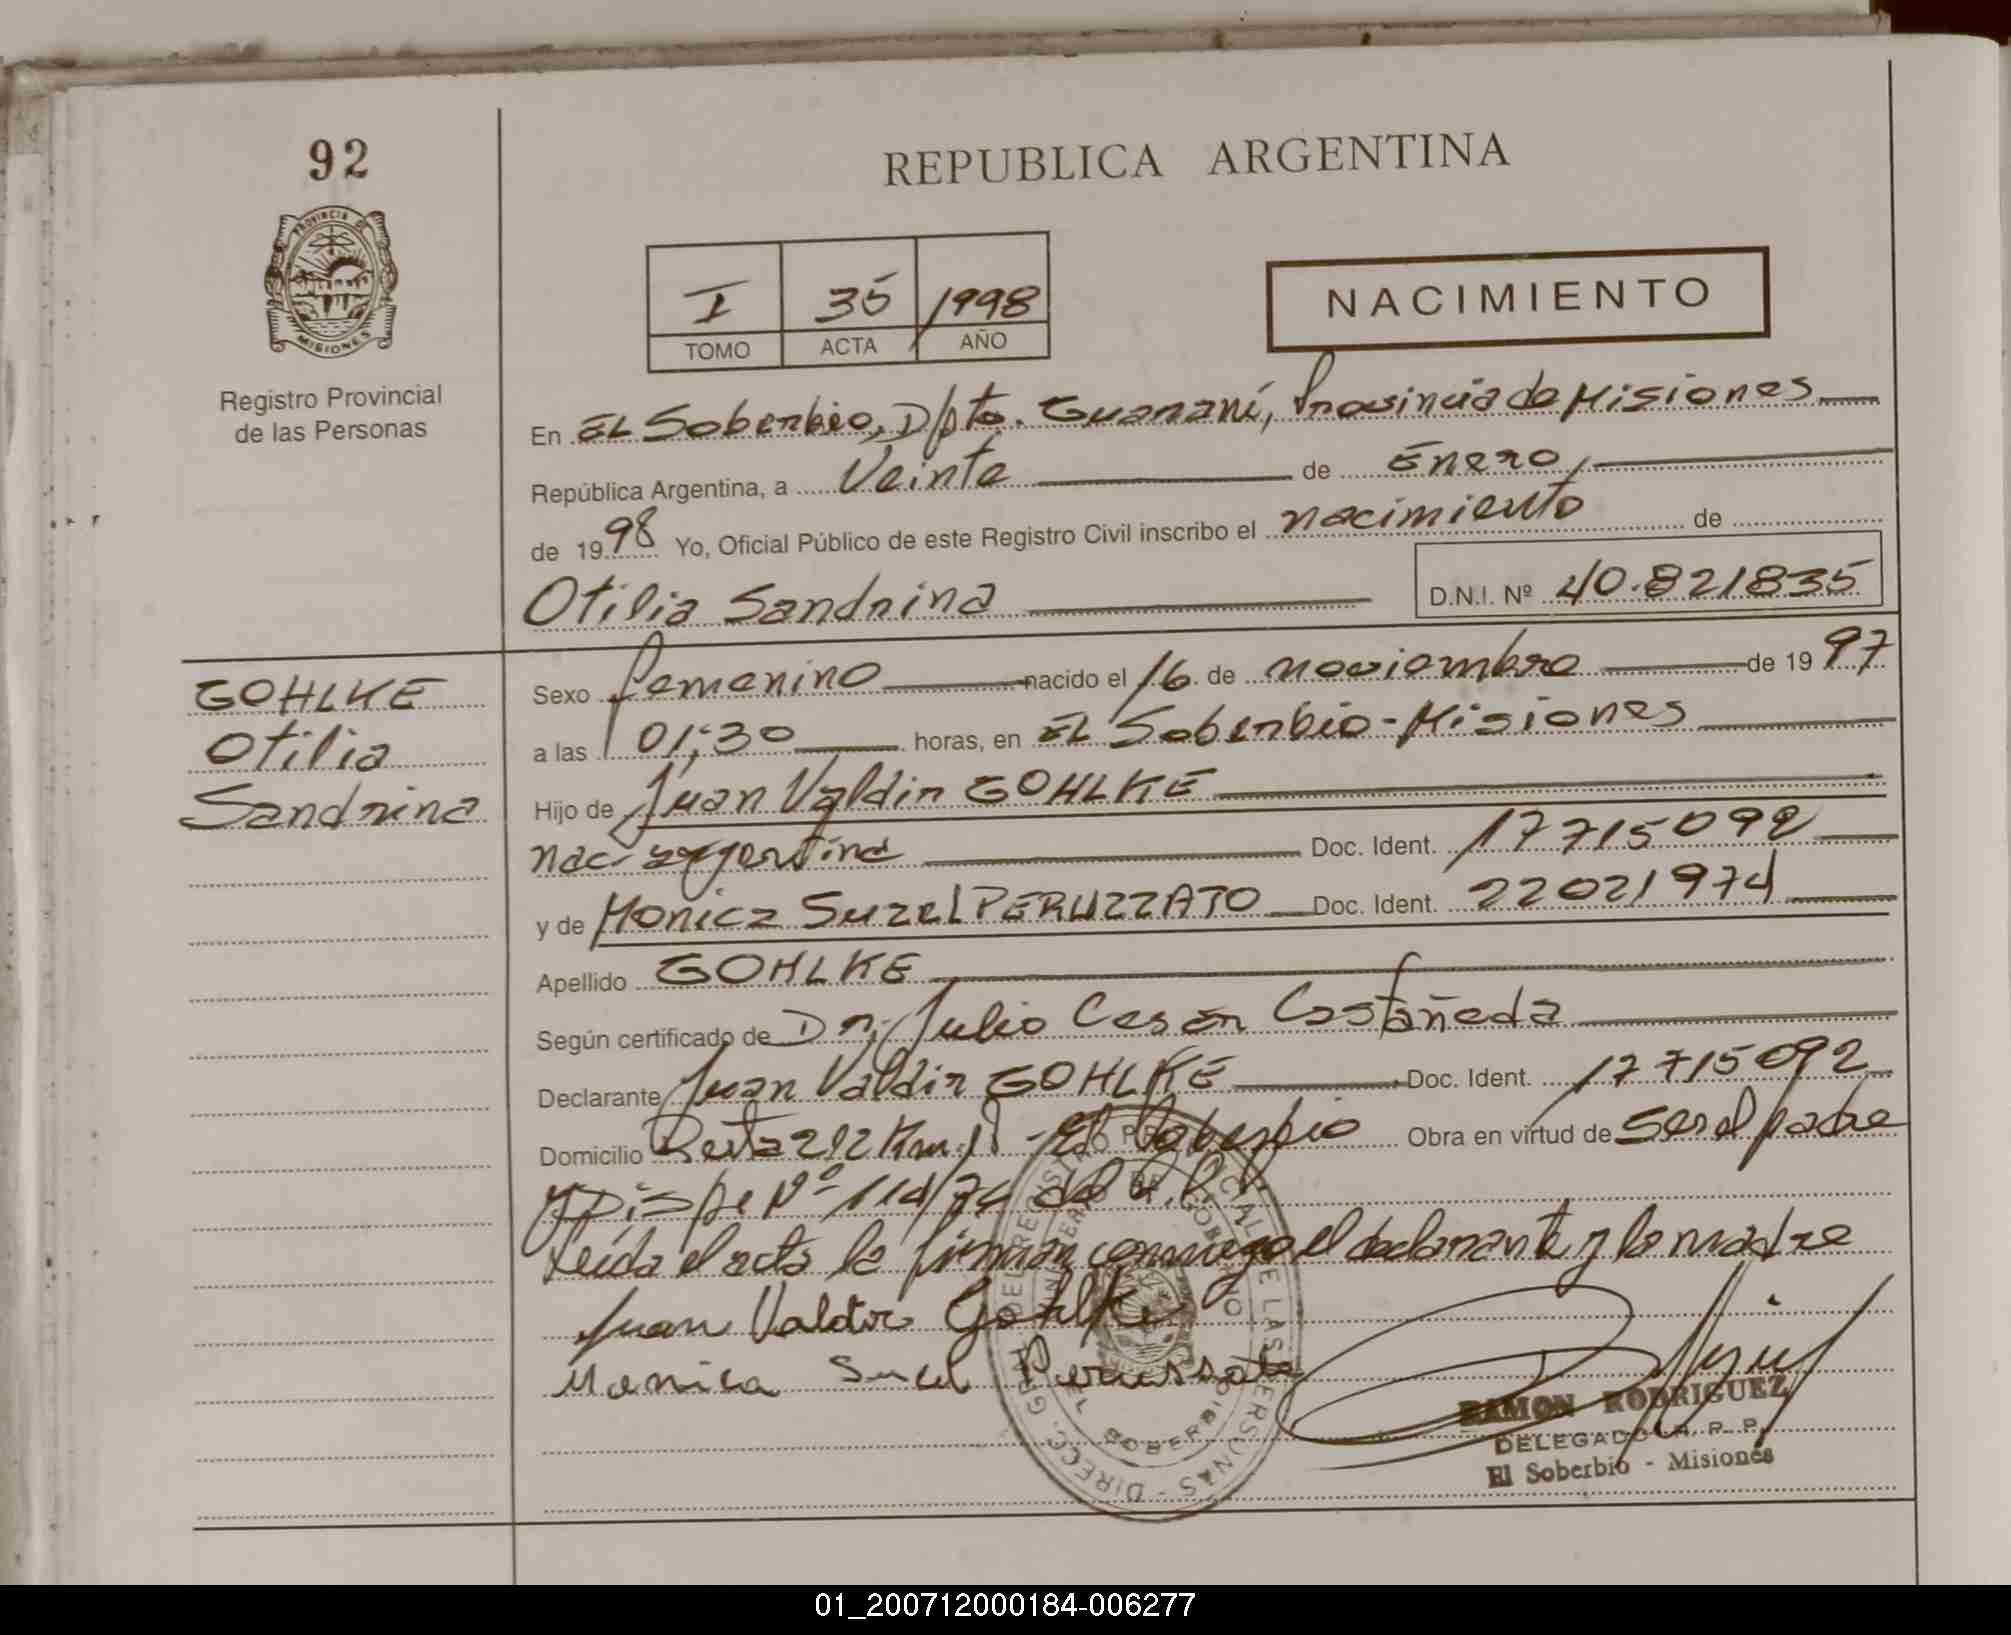 92
REPUBLICA ARGENTINA
PROVINCIA DE
MISIONES
Registro Provincial
de las Personas
I 35 1998
TOMO ACTA AÑO
NACIMIENTO
En EL Soberbio, Dpto. Guaraní, Provincia de Misiones
República Argentina, a Veinte de Enero
de 1998 Yo, Oficial Público de este Registro Civil inscribo el nacimiento de
Otilia Sandrina D.N.I. Nº 40.821835
GOHLKE
Otilia
Sandrina
Sexo femenino nacido el 16 de noviembre de 1997
a las 01:30 horas, en EL Soberbio - Misiones
Hijo de Juan Valdir GOHLKE
nac. argentina Doc. Ident. 17715092
y de Monica Suzel PERUZZATO Doc. Ident. 22021974
Apellido GOHLKE
Según certificado de Dr. Julio Cesar Castañeda
Declarante Juan Valdir GOHLKE Doc. Ident. 17715092
Domicilio Ruta 212 Km. - El Soberbio Obra en virtud de ser el padre
y Disp. Nº 114/74
Leída el acta la firman conmigo el declarante y la madre
Juan Valdir Gohlke
Monica Sucel Perussato
RAMON RODRIGUEZ
DELEGADO R. P. P.
El Soberbio - Misiones
EL SOBERBIO
01_200712000184-006277